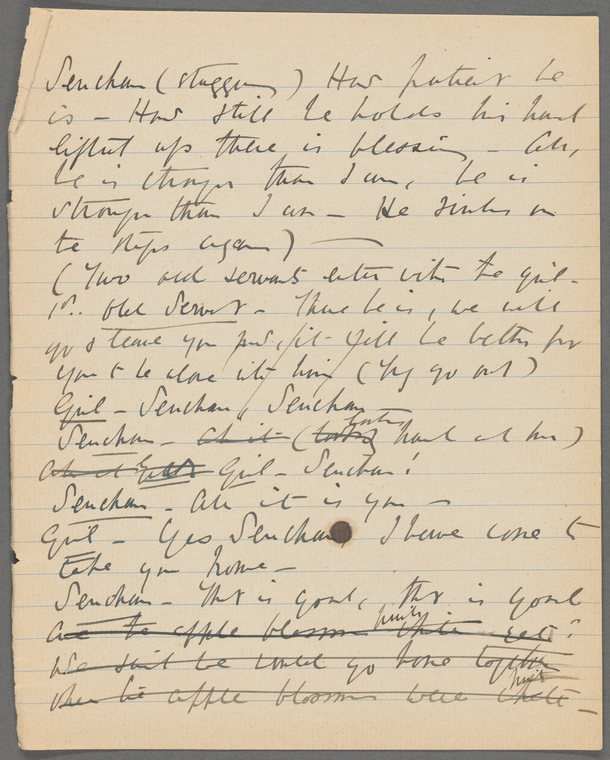 Senchan (staggering) How patient he
is – How still he holds his hand
lifted up there in blessing – Ah,
he is stronger than I am, he is
stronger than I am – He sinks on
te steps again)
(Two old servants enter with the girl –
1st. old Servant – There he is, we will
go & leave you, it will be better for
you to be alone with him (They go out)
Girl – Senchan, Senchan
Senchan – Ah it (looks hard at her)
Ah it Girl Girl – Senchan!
Senchan. – Ah it is you –
Girl – Yes Senchan, I have come to
take you home –
Senchan – That is good, that is good
are the apple blossoms white yet?
We said we would go home together
when the apple blossoms were white –